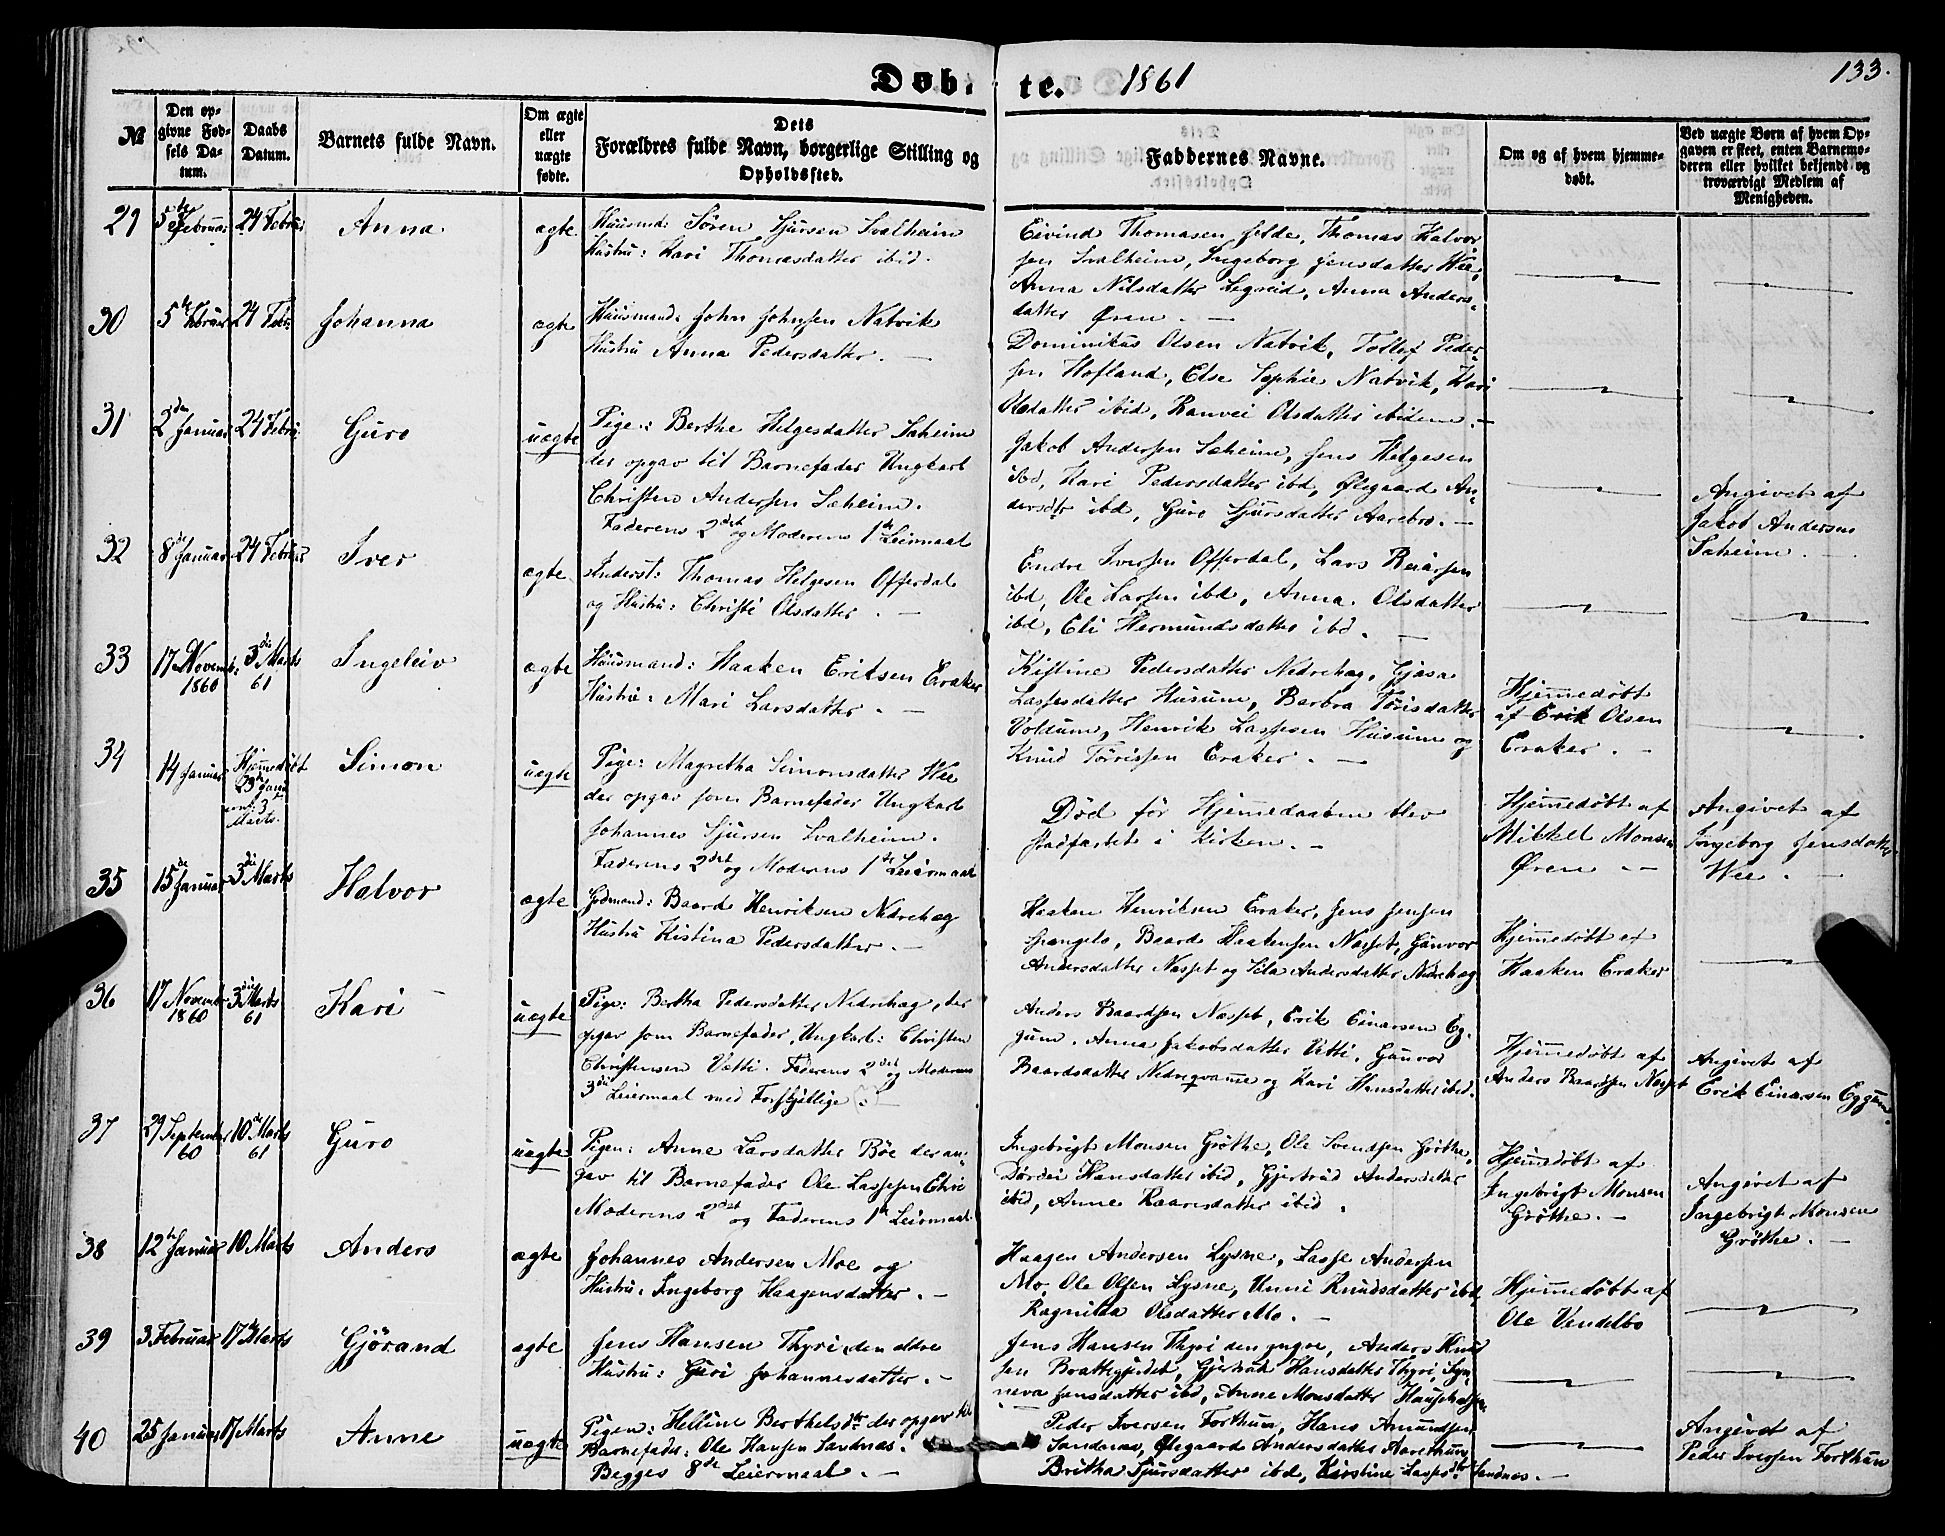 133.
Døbte. 1861
№
Den opgivne Fødsels Datum.
Daabs Datum.
Barnets fulde Navn.
Om ægte eller uægte fødte.
Dets Forældres fulde Navn, borgerlige Stilling og Opholdssted.
Faddernes Navne.
Om og af hvem hjemmedøbt.
Ved uægte Børn af hvem Opgaven er skeet, enten Barnemoderen eller hvilket bekjendt og troværdigt Medlem af Menigheden.
29 5te Februar 24 Februar Anna ægte
Huusmd: Søren Sjursen Svalheim
Hustru: Kari Thomasdatter ibid.
Eivind Thomasen Felde, Thomas Halvor
sen Svalheim, Ingeborg Jensdatter Wee,
Anna Nilsdatter Legreid, Anna Anders
datter Øren. —
30 5te Februar 24 Febr. Johanna ægte
Huusmand: John Johnsen Natvik
Hustru Anna Pedersdatter. —
Dominikus Olsen Natvik, Tollef Peder
sen Hofland, Else Sophie Natvik, Kari
Olsdatter ibid, Ranvei Olsdatter ibidem. —
31 2den Januar 24 Febru. Guro uægte
Pige: Berthe Helgesdatter Sæheim
der opgav til Barnefader Ungkarl
Christen Andersen Sæheim.
Faderens 2det og Moderens 1te Leiermaal
Jakob Andersen Sæheim, Jens Helgesen
ibd, Kari Pedersdatter ibd, Ølegaard An
dersdtr ibd, Guro Sjursdatter Aarebro. —
Angivet af
Jakob Andersen
Sæheim. —
32 8de Januar 24 Februar Iver ægte
Inderst: Thomas Helgesen Offerdal
og Hustru: Christi Olsdatter. —
Endre Iversen Offerdal, Lars
ibd, Ole Larsen ibd, Anna Olsdatter
ibd, Eli Hermundsdatter ibd. —
33 17 Novemb: 1860 3die Marts 61 Ingeleiv ægte
Huusmand: Haaken Eriksen Eraker
Hustru: Mari Larsdatter. —
Kistine Pedersdatter Nedrehæg, Gjøsa
Lassesdatter Husum, Barbra Tørrisdatter
Voldum, Henrik Lassesen Husum og
Knud Tørrissen Eraker. —
Hjemmedøbt
af Erik Olsen
Eraker. —
34 14 Januar Hjemmedøbt 23de Janu 3 Marts. Simon uægte
Pige: Magretha Simonsdatter Wee
der opgav som Barnefader Ungkarl
Johannes Sjursen Svalheim.
Faderens 2det og Moderens 1te Leiermaal
Død før Hjemmedaaben blev
stadfæstet i Kirken. —
Hjemmedøbt af
Mikkel Monsen
Øren —
Angivet af
Ingeborg Jensdatter
Wee. —
35 15de Januar 3die Marts Halvor ægte
Grdmand: Baard Henriksen Nedrehæg
Hustru Kistina Pedersdatter. —
Haaken Henriksen Eraker, Jens Jensen
Spangelo, Baard Haakensen Næsset, Gunvor
Andersdatter Næsset og Sila Andersdatter Nedrehæg
Hjemmedøbt af
Haaken Eraker
36 17 November 1860 3die Marts 61 Kari uægte
Pige: Bertha Pedersdatter Nedrehæg, der
opgav som Barnefader, Ungkarl: Christen
Christensen Vetti. Faderens 2det og Moderens
3die Leiermaal med Forskjellige
Anders Baardsen Næsset, Erik Einarsen Eg
gum, Anna Jakobsdatter Vetti, Gunvor
Baardsdatter Nedreqvamme og Kari Hansdatter ibid.
Hjemmedøbt af
Anders Baardsen Næsset
Angivet af
Erik Einarsen Eggum.
37 29 September 60 10de Marts 61 Guro uægte
Pigen: Anne Larsdatter Bøe der an
gav til Barnefader Ole Lassesen Ethri
Moderens 2det og Faderens 1te Leiermaal.
Ingebrigt Monsen Grøthe, Ole Svendsen Grøthe,
Dordei Hansdatter ibid, Gjertrud Andersdatter
ibid, Anne Raaresdatter ibid.
Hjemmedøbt af
Ingebrigt Monsen
Grøthe. —
Angivet af
Ingebrigt Monsen
Grøthe. —
38 12te Januar 10 Marts Anders ægte
Johannes Andersen Moe og
Hustru: Ingeborg Haagensdatter. —
Haagen Andersen Lysne, Lasse Andersen
Mo, Ole Olsen Lysne, Unni Knudsdatter ibd,
Ragnilda Olsdatter Mo. —
Hjemmedøbt af
Ole Vendelbo
39 3. Februar 17de Marts Gjørand ægte
Jens Hansen Thyri den ældre
Hustru: Guri Johannesdatter. —
Jens Hansen Thyri den yngre, Anders Knud
sen Brattegjerdet, Gjertrud Hansdatter Thyri, Syn
neva Jensdatter ibd, Anne Monsdatter
40 25 Januar 17 Marts Anne uægte
Pigen: Helline Berthelsdtr der opgav til
Barnefader: Ole Hansen Sandnæs.
Begges 8de Leiermaal. —
Peder Iversen Forthun, Hans Amundsen
Sandnæs, Ølegaard Andersdatter Aarethun,
Britha Sjursdatter ibd, Kirstine Lassesdtr Sandnes. —
Angivet af
Peder Iversen Forthun